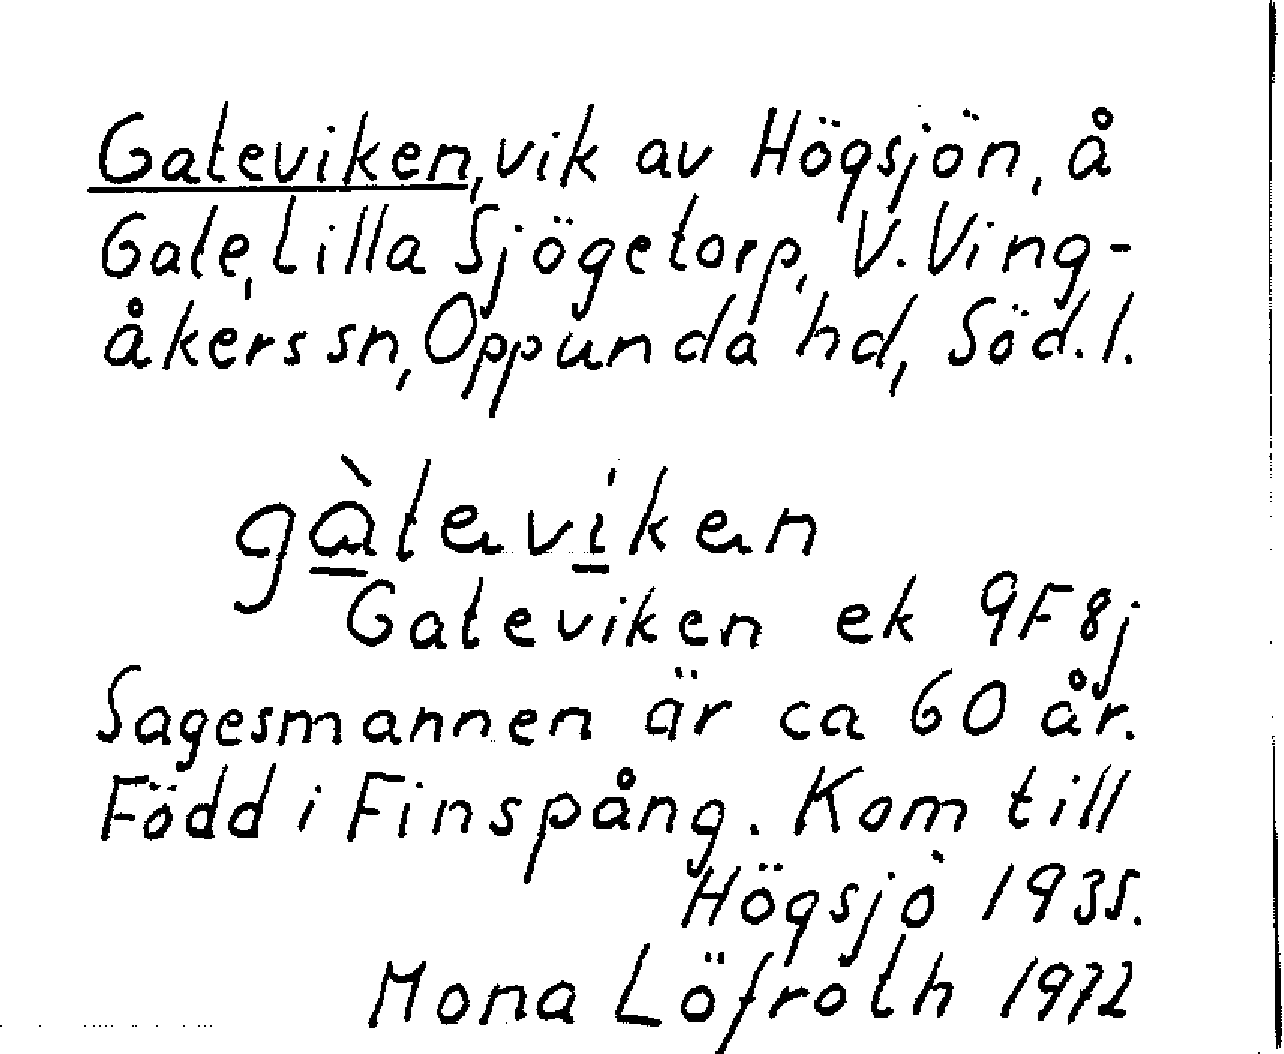 Gateviken, vik av Högsjön, å
Gate, Lilla Sjögetorp, V. Ving-
åkers sn, Oppunda hd, Söd. l.
gàtevíken
Gateviken ek 9F8j
Sagesmannen är ca 60 år.
Född i Finspång. Kom till
Högsjö 1935.
Mona Löfroth 1972